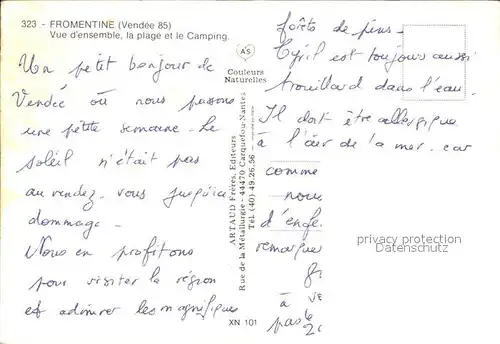 323 - FROMENTINE (Vendée 85)
Vue d'ensemble, la plage et le Camping.
Un petit bonjour de
Vendée où nous passons
une petite semaine. Le
soleil n'était pas
au rendez-vous jusqu'ici
dommage.
Nous en profitons
pour visiter la région
et admirer les magnifiques
A's
Couleurs
Naturelles
ARTAUD Frères, Editeurs
Rue de la Métallurgie - 44470 Carquefou-Nantes
Tél. (40) 49.26.56
XN 101
forêts de pins.
Cyril est toujours aussi
trouillard dans l'eau.
Il doit être allergique
à l'air de la mer. car
comme
nous
d'enfe
remarques
à
pas
privacy protection
Datenschutz